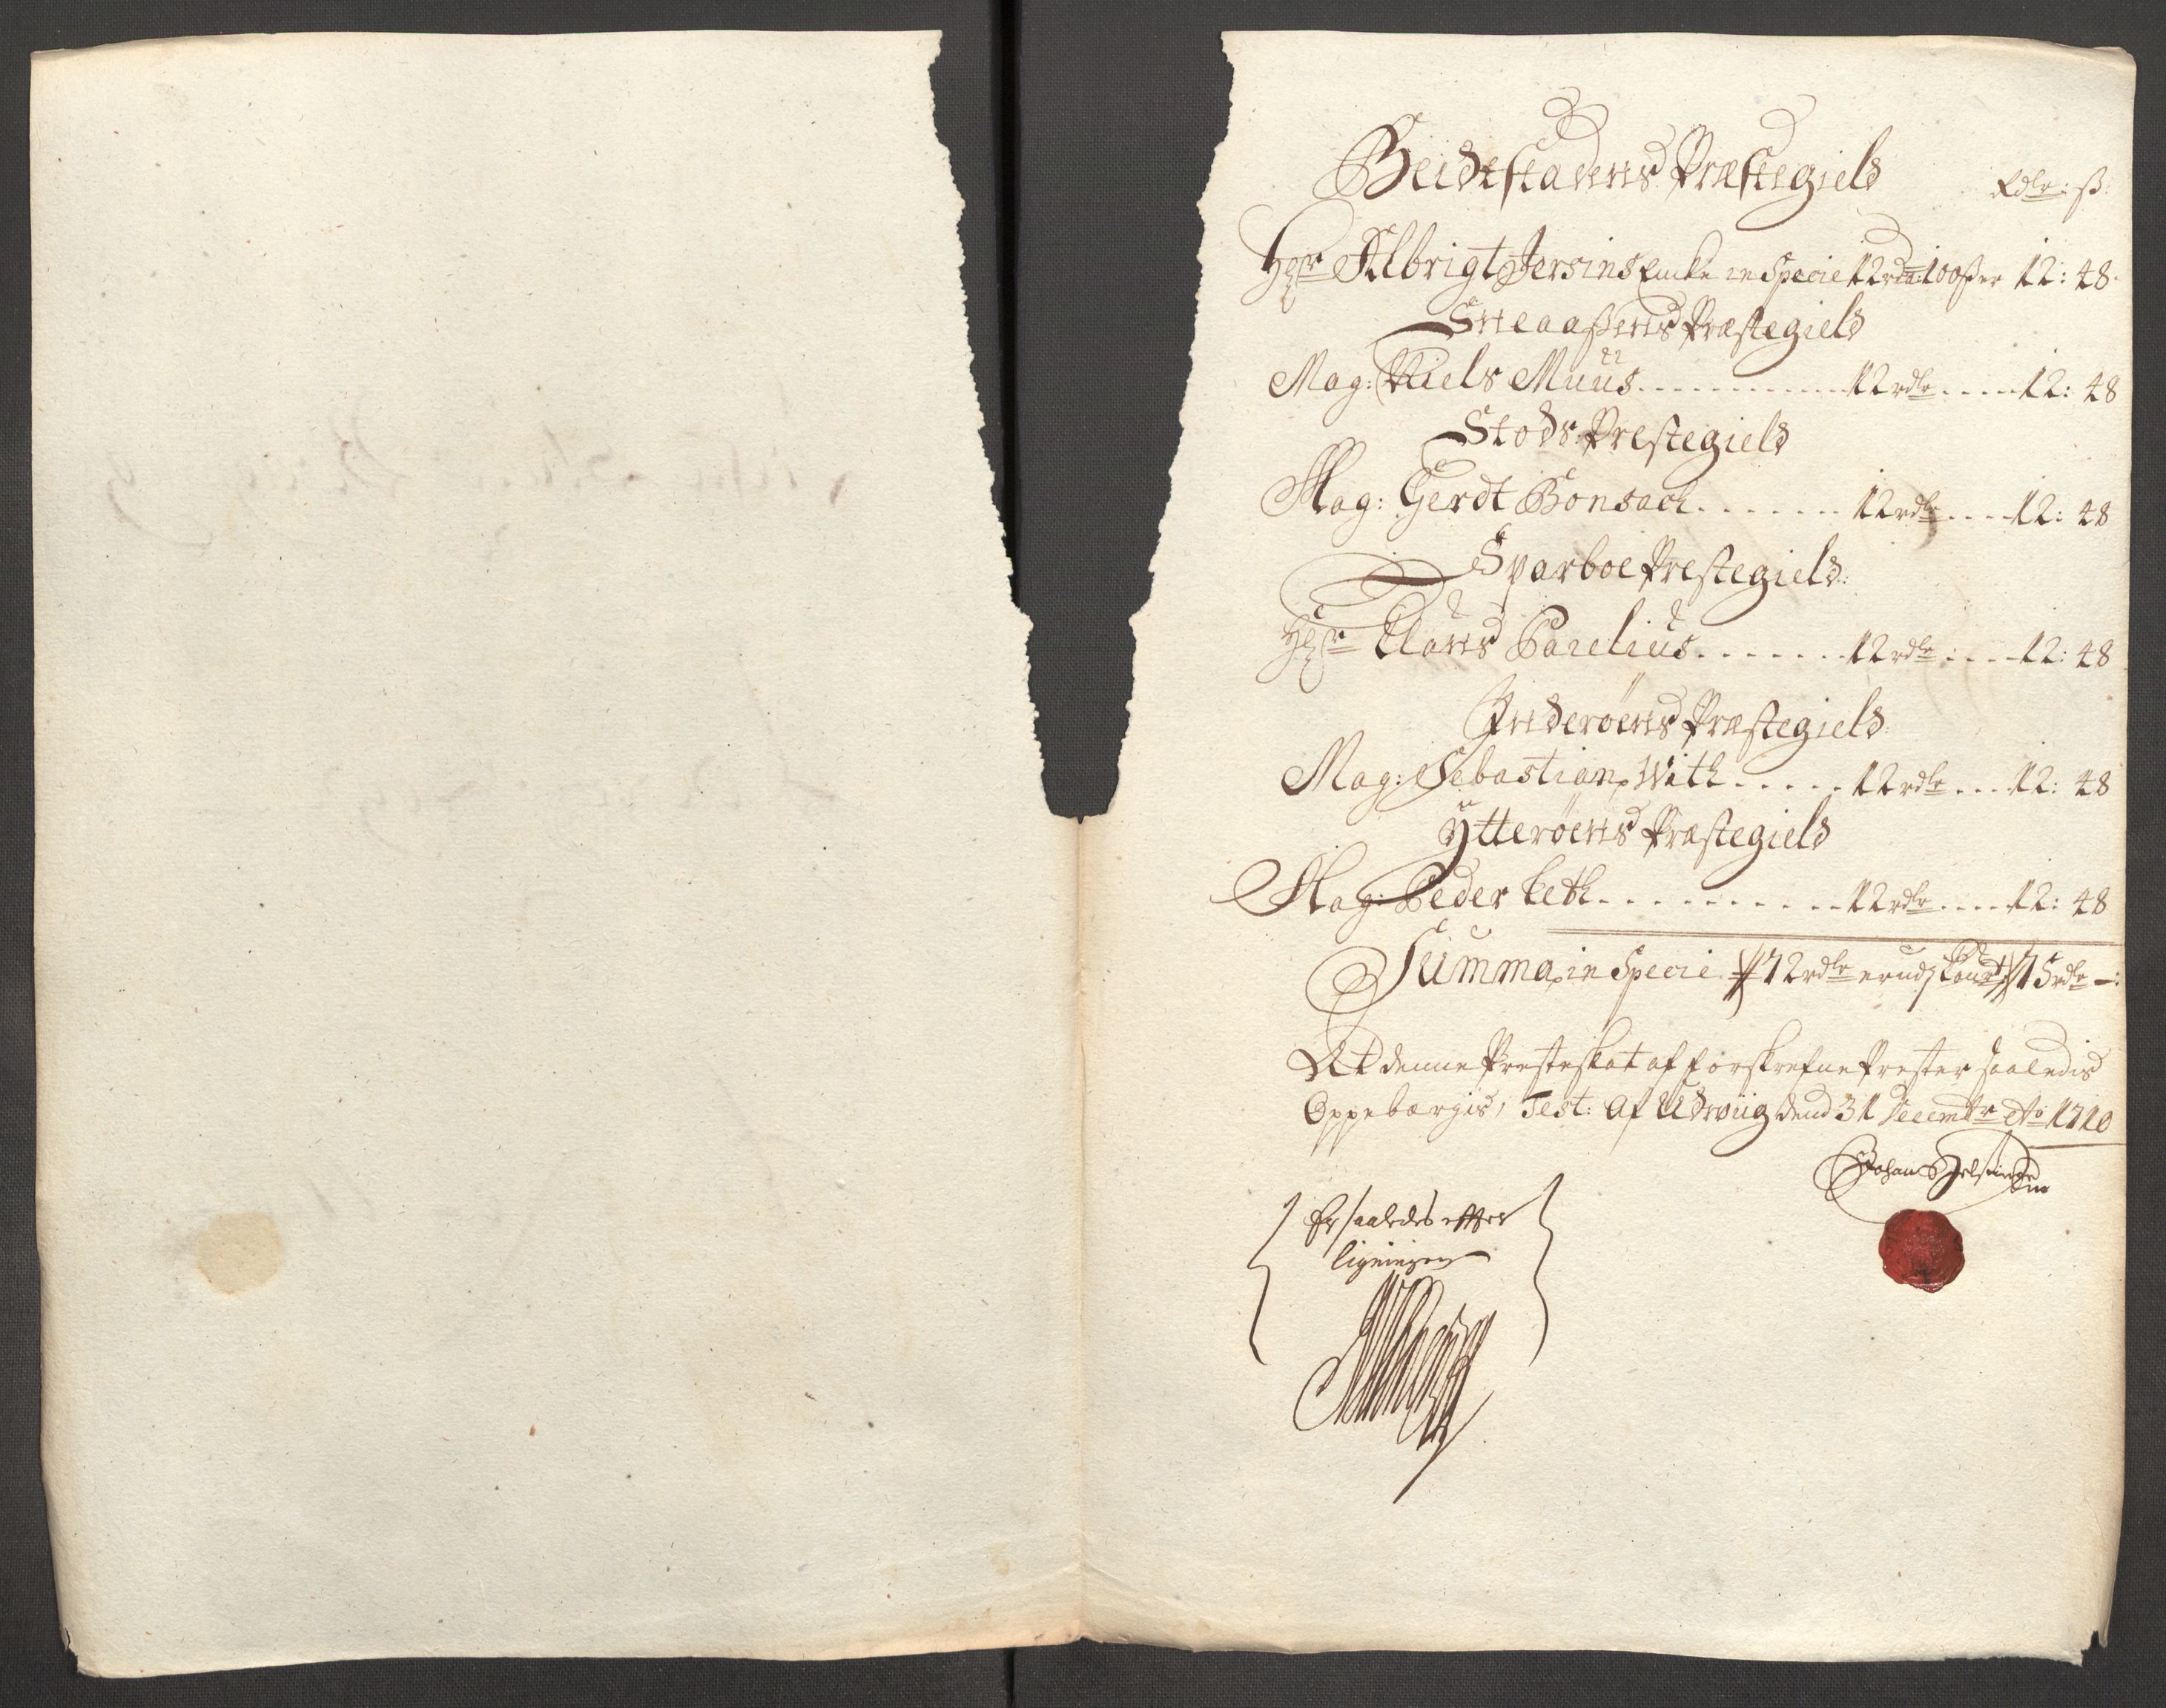 Beidestadens Præstegield
Rdlr: ß:
Hr Albrigt Jersins Encke in Specie 12 rdr: 100 ß er 12: 48.
Sneaaßens Præstegield
Mag: Niels Muus ........... 12 rdlr .... 12: 48
Stods Prestegield
Mag: Gerdt Bonsach ...... 12 rdlr .... 12: 48
Sparboe Prestegield:
Hr Claus Parelius ...... 12 rdlr .... 12: 48
Inderøens Præstegield
Mag: Sebastian With ..... 12 rdlr ... 12: 48
Ytterøens Præstegield
Mag: Peder Keth .......... 12 rdlr .... 12: 48
Summa in Specie 72 rdlr er udj 75 rdlr –:
At denne Presteskat af forskrefne Prester saaledis
Oppebærgis, Test: Af Udviig dend 31 Decembr Ao 1710
Johan
Er saaledes efter
ligningen